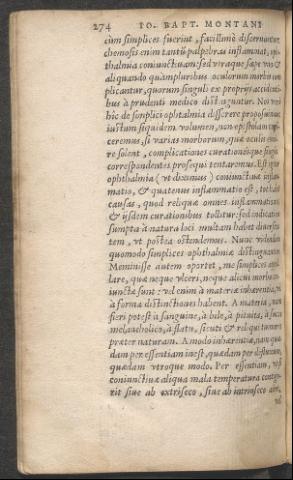 274 IO. BAPT. MONTANI
cùm simplices fuerint, facillimè discernuntur,
chemosis enim tantũ palpebras inflammat,
thalmia coniunctiuam: sed vtraque sæpe vno &
aliquando quàmpluribus oculorum morbis com
plicantur, quorum singuli ex proprijs acciden
bus à prudenti medico distinguntur. Nos verò
hîc de simplici ophtalmia disserere proposuimus,
iustum siquidem volumen, non epistolam
ceremus, si varias morborum, quæ oculis
re solent, complicationes curationésque simul
correspondentes prosequi tentaremus. Est igitur
ophthalmia (vt diximus) coniunctiuæ inflam
matio, & quatenus inflammatio est, tot habet
causas, quod reliquæ omnes inflammationes
& ijsdem curationibus tollitur: sed indicatio
sumpta à natura loci multam habet diuersita
tem, vt postea ostendemus. Nunc videndum
quomodo simplices ophthalmiæ distinguantur.
Meminisse autem oportet, me simplices
lare, quæ neque vlceri, neque alicui morbo
iunctæ sunt: vel enim à materia inhærentia, vel
à forma distinctiones habent. A materia, nam
fieri potest à sanguine, à bile, à pituita, à succo
melancholico, à flatu, sicuti & reliqui tumores
præter naturam. A modo inhærentiæ, nam quæ
dam per essentiam inest, quædam per defluxum,
quædam vtroque modo. Per essentiam, vt si
coniunctiuæ aliqua mala temperatura contige
rit siue ab extrinseco, siue ab intrinseco